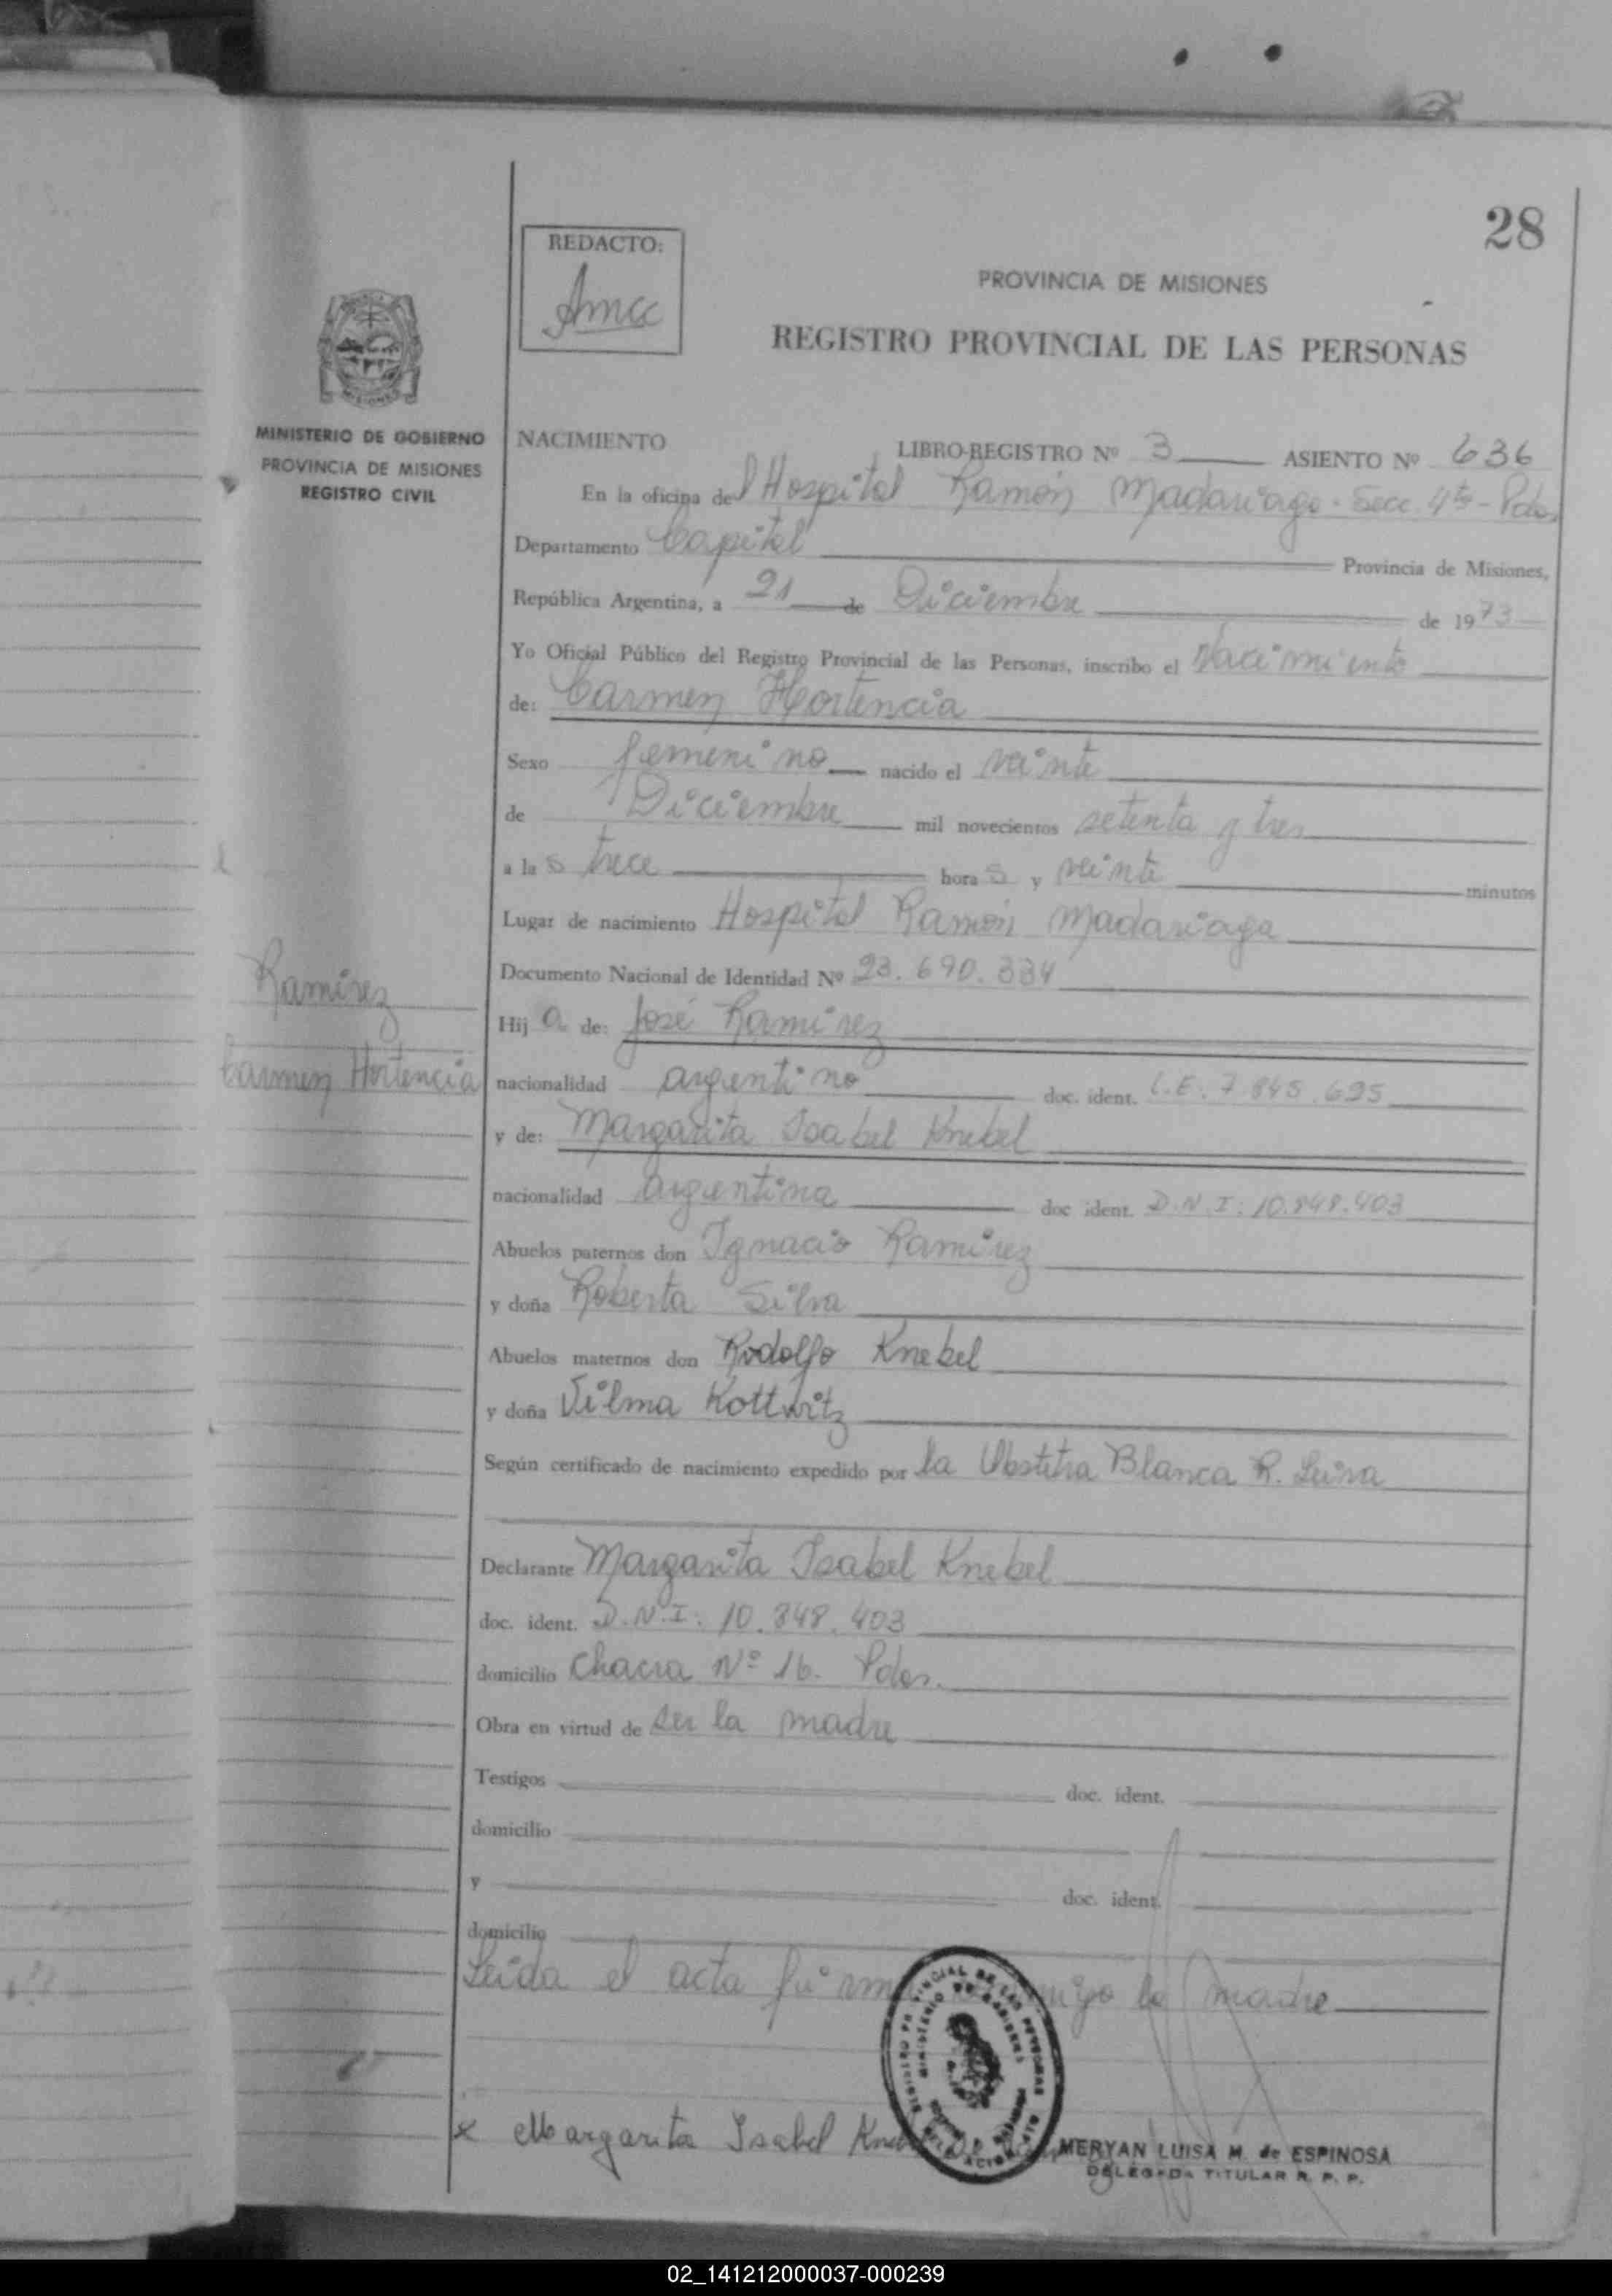 28
REDACTO:
Amcc
PROVINCIA DE MISIONES
REGISTRO PROVINCIAL DE LAS PERSONAS
MISIONES
MINISTERIO DE GOBIERNO
PROVINCIA DE MISIONES
REGISTRO CIVIL
NACIMIENTO LIBRO-REGISTRO Nº 3 ASIENTO Nº 636
En la oficina del Hospital Ramón Madariaga - Secc. 4ta - Pdas
Departamento Capital Provincia de Misiones,
República Argentina, a 21 de Diciembre de 1973
Yo Oficial Público del Registro Provincial de las Personas, inscribo el Nacimiento
de: Carmen Hortencia
Sexo femenino nacido el veinte
de Diciembre mil novecientos setenta y tres
a las trece horas y veinte minutos
Lugar de nacimiento Hospital Ramón Madariaga
Documento Nacional de Identidad Nº 23.690.334
Ramírez
Carmen Hortencia
Hija de: José Ramirez
nacionalidad argentino doc. ident. L.E. 7.845.695
y de: Margarita Isabel Knebel
nacionalidad argentina doc ident. D.N.I: 10.848.403
Abuelos paternos don Ignacio Ramirez
y doña Roberta Silva
Abuelos maternos don Rodolfo Knebel
y doña Vilma Kottwitz
Según certificado de nacimiento expedido por la Obstetra Blanca R. Leiva
Declarante Margarita Isabel Knebel
doc. ident. D.N.I: 10.848.403
domicilio Chacra Nº 16. Pdas.
Obra en virtud de ser la madre
Testigos doc. ident.
domicilio
y doc. ident.
domicilio
Leida el acta la madre
x Margarita Isabel
MERYAN LUISA M. de ESPINOSA
DELEGADA TITULAR R. P. P.
02_141212000037-000239